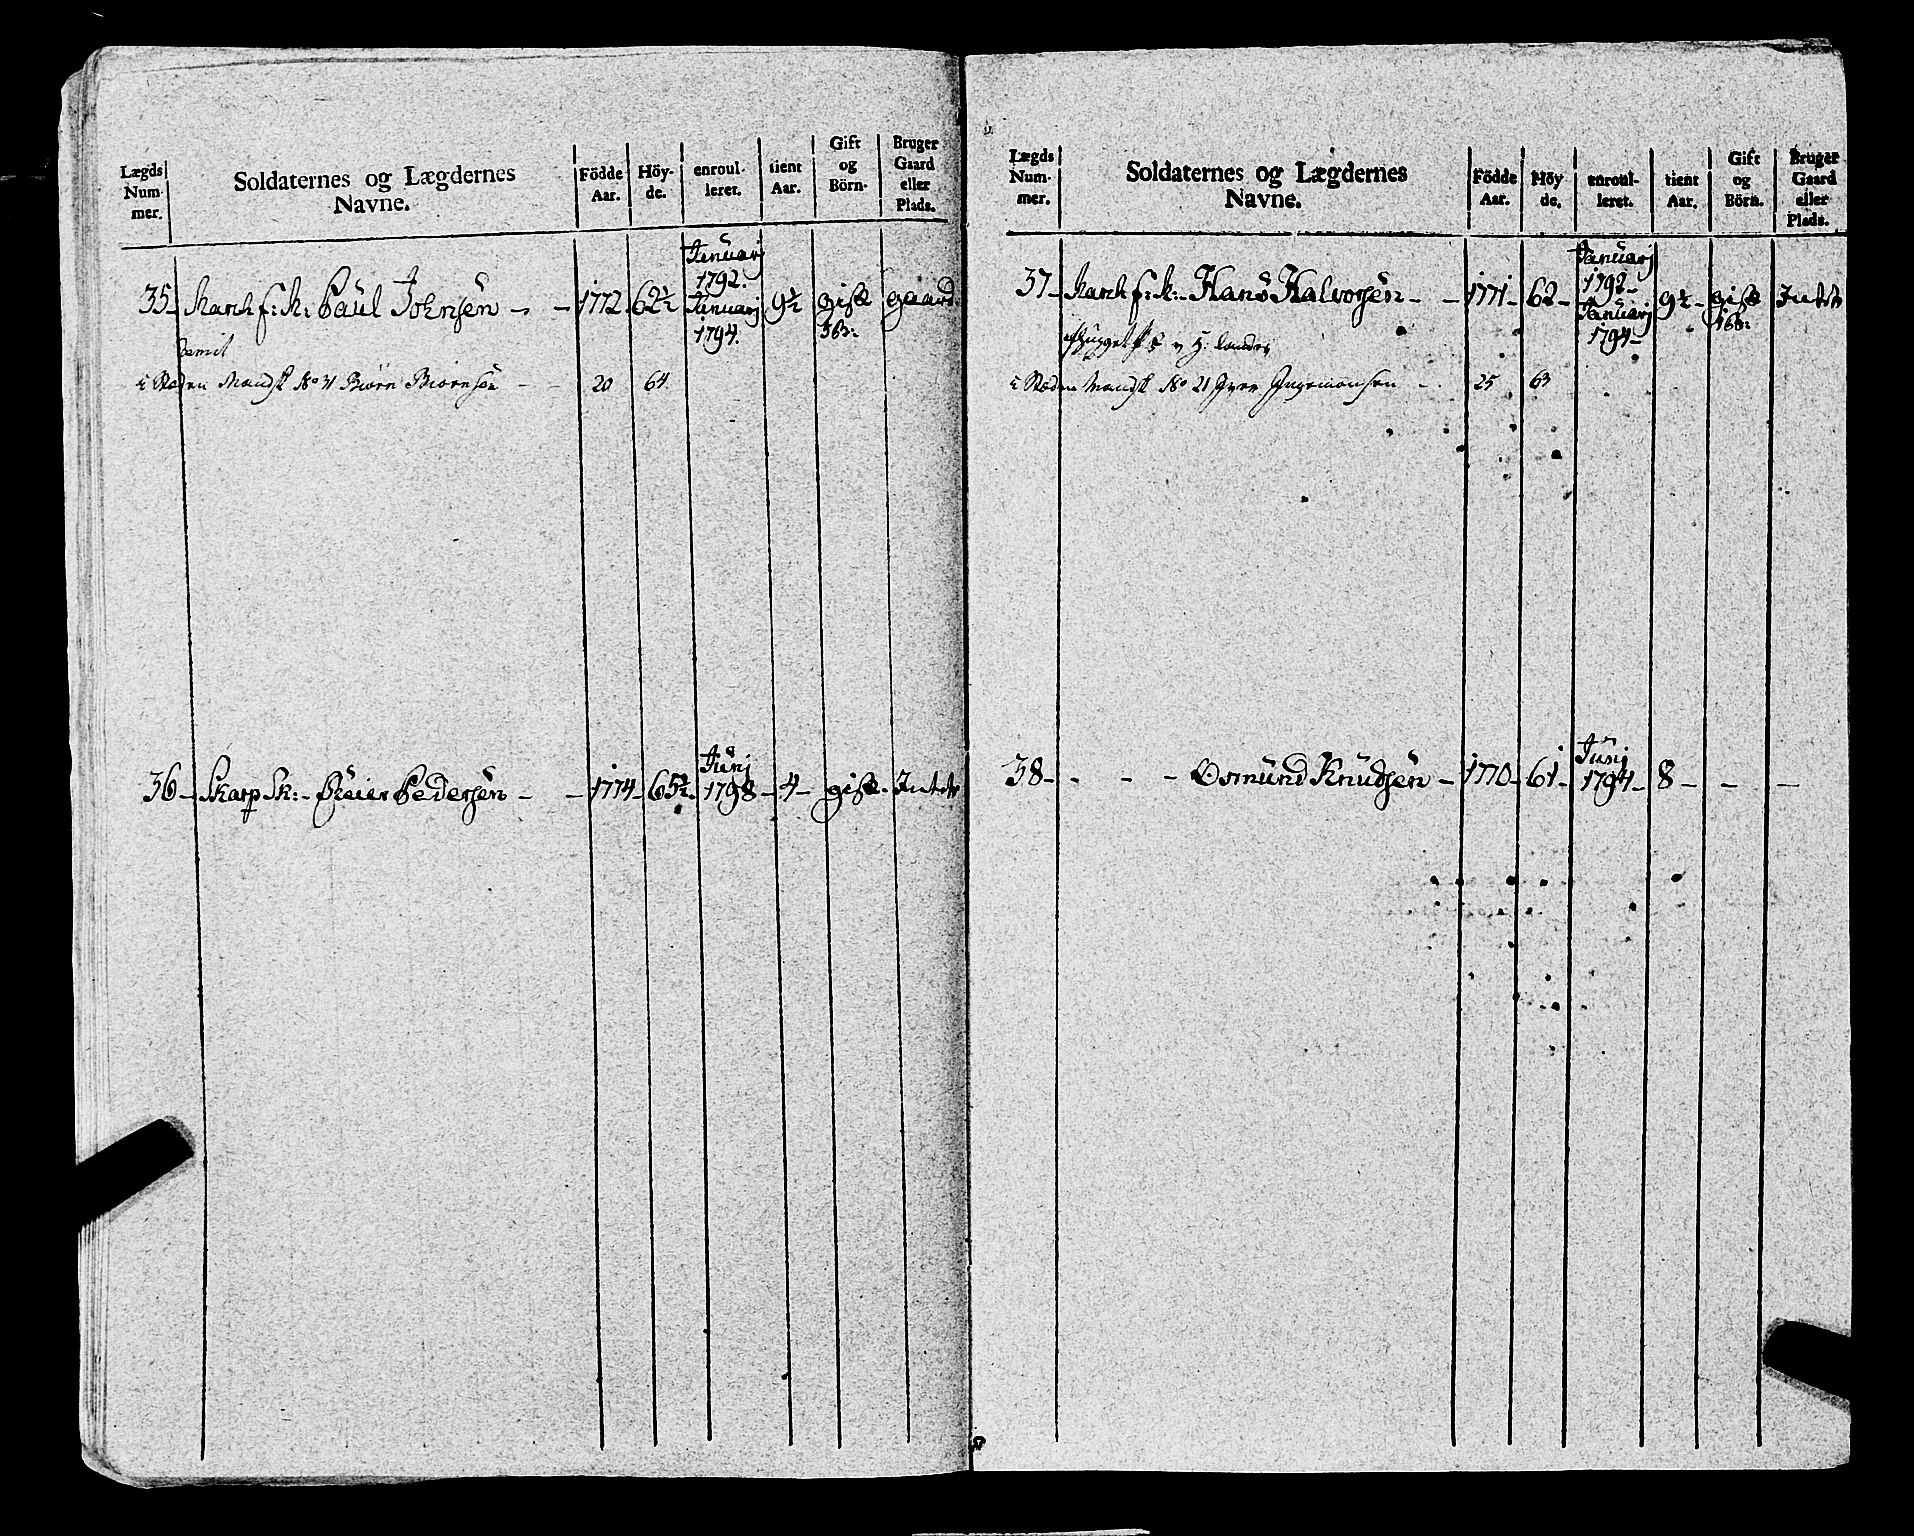 Lægds Nummer. Soldaternes og Lægdernes Navne. Födde Aar. Höyde. enroulleret. tient Aar. Gift og Börn. Bruger Gaard eller Plads.
Januarj
1792.
35 - f: k: Paul Johnsen - - 1772. 62½ Januarj 9½ gift gaard.
1794. 1 b:
i Stæden Mandsk No 31 Biørn Biørnsen - - 20 64
Junj
36 - Skarp Sk: - Reier Pedersen - - 1774 - 65½ - 1798 - 4 - gift - Intet
Lægds Nummer. Soldaternes og Lægdernes Navne. Födde Aar. Höyde. enroulleret. tient Aar. Gift og Börn. Bruger Gaard eller Plads.
Januarj
1792 -
37 - f: k: - Hans Halvorsen - - 1771 - 62 - Januarj 9½ - gift Intet
1794 - 1 b:
i Stæden Mandsk No 21 Iver Ingemonsen - - 25 63
Junj
38 - - - - Osmund Knudsen - 1770 - 61 - 1794 - 8 - - -